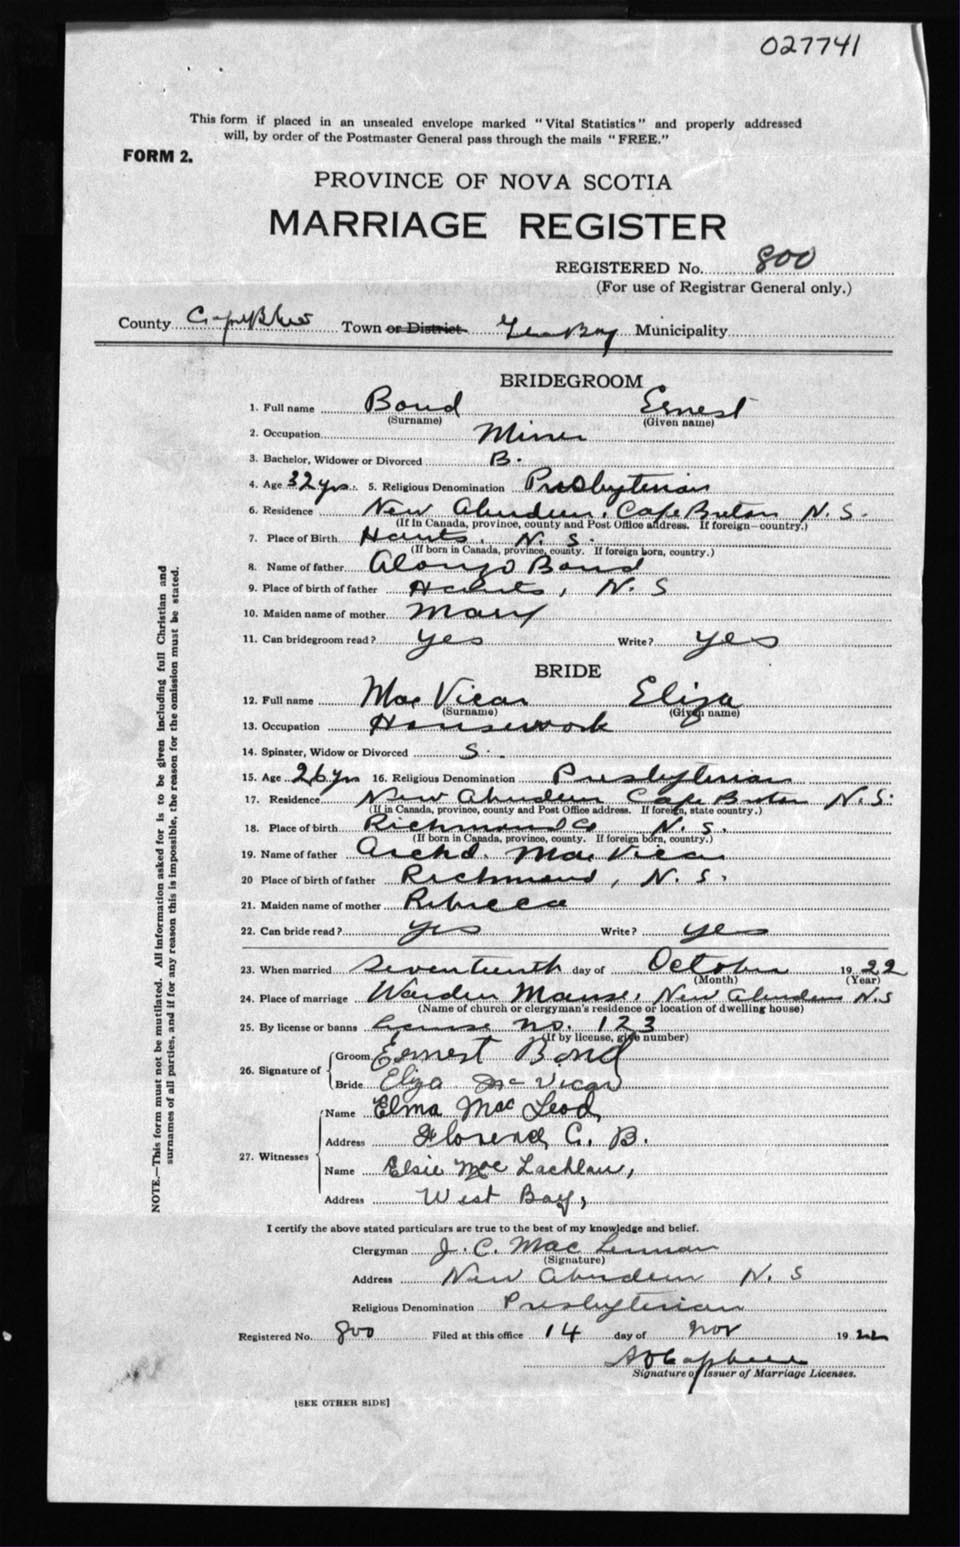 027741
This form if placed in an unsealed envelope marked "Vital Statistics" and properly addressed
will, by order of the Postmaster General pass through the mails "FREE."
FORM 2.
PROVINCE OF NOVA SCOTIA
MARRIAGE REGISTER
REGISTERED No. 800
(For use of Registrar General only.)
County Town or District Municipality
BRIDEGROOM
1. Full name Bond Ernest
(Surname) (Given name)
2. Occupation Miner
3. Bachelor, Widower or Divorced B.
4. Age 32 yrs. 5. Religious Denomination Presbyterian
6. Residence New Aberdeen, Cape Breton N. S.
(If in Canada, province, county and Post Office address. If foreign—country.)
7. Place of Birth Hants, N. S.
(If born in Canada, province, county. If foreign born, country.)
8. Name of father Alonzo Bond
9. Place of birth of father Hants, N. S
10. Maiden name of mother Mary
11. Can bridegroom read? yes Write? yes
BRIDE
12. Full name Mac Vicar Eliza
(Surname) (Given name)
13. Occupation Housework
14. Spinster, Widow or Divorced S.
15. Age 26 yrs 16. Religious Denomination Presbyterian
17. Residence New Aberdeen Cape Breton N. S.
(If in Canada, province, county and Post Office address. If foreign, state country.)
18. Place of birth Richmond Co N. S.
(If born in Canada, province, county. If foreign born, country.)
19. Name of father Archd. Mac Vicar
20 Place of birth of father Richmond, N. S.
21. Maiden name of mother Rebecca
22. Can bride read? yes Write? yes
23. When married Seventeenth day of October 1922
(Month) (Year)
24. Place of marriage Warden Manse, New Aberdeen N.S
(Name of church or clergyman's residence or location of dwelling house)
25. By license or banns license no. 123
(If by license, give number)
26. Signature of Groom Ernest Bond
Bride Eliza Mc Vicar
27. Witnesses
Name Elma Mac Leod,
Address Florence, C. B.
Name Elsie Mac Lachlan,
Address West Bay,
I certify the above stated particulars are true to the best of my knowledge and belief.
Clergyman J. C. Mac Lennan
(Signature)
Address New Aberdeen N. S
Religious Denomination Presbyterian
Registered No. 800 Filed at this office 14 day of Nov 1922
Signature of Issuer of Marriage Licenses.
[SEE OTHER SIDE]
NOTE.—This form must not be mutilated. All information asked for is to be given including full Christian and
surnames of all parties, and if for any reason this is impossible, the reason for the omission must be stated.